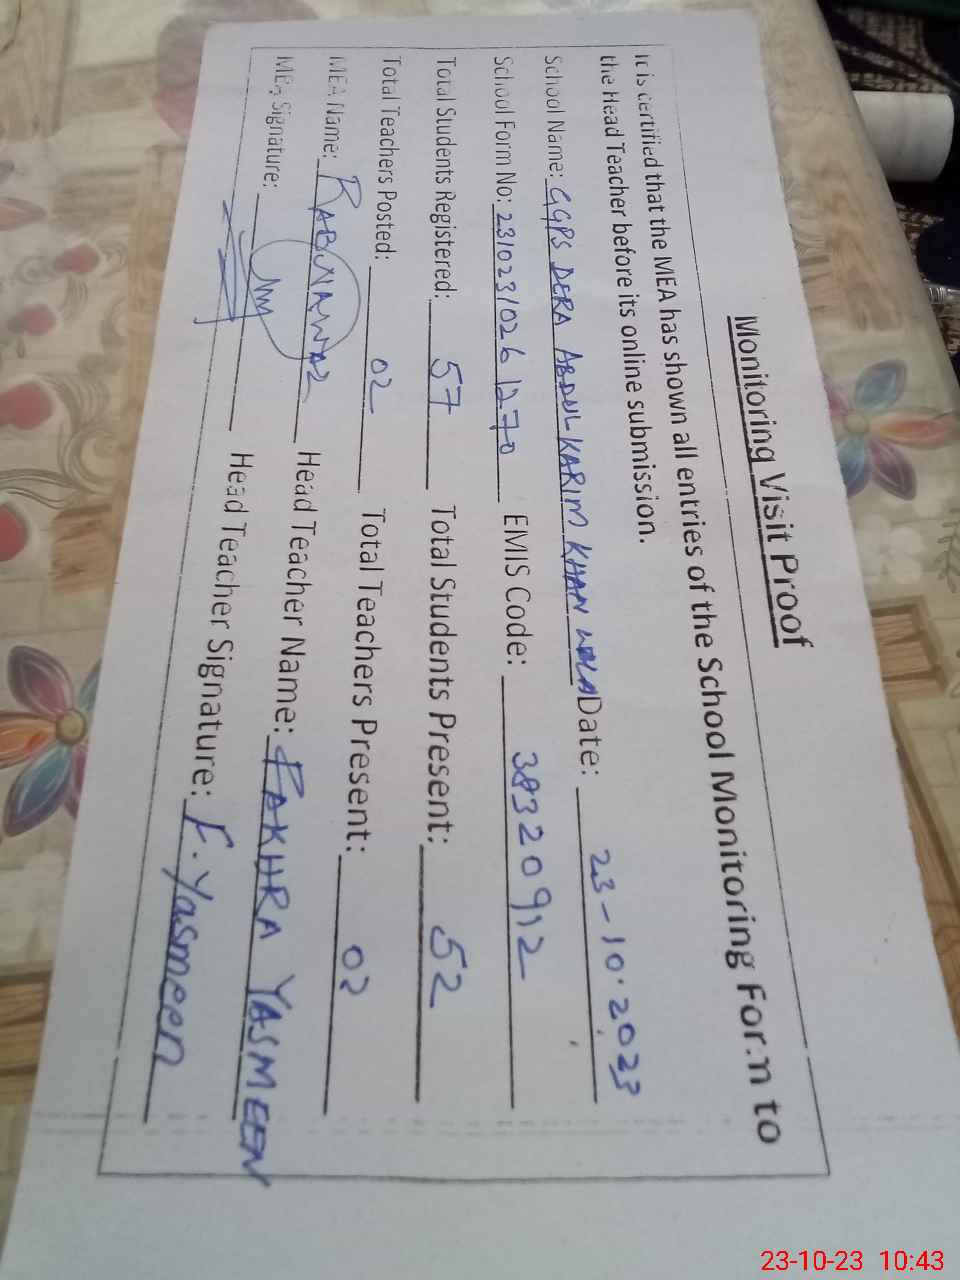 Monitoring Visit Proof
It is certified that the MEA has shown all entries of the School Monitoring Form to
the Head Teacher before its online submission.
School Name: GGPS DERA ABDUL KARIM KHAN WALA Date: 23-10-2023
School Form No: 231023/0261270 EMIS Code: 38320912
Total Students Registered: 57 Total Students Present: 52
Total Teachers Posted: 02 Total Teachers Present: 02
MEA Name: RABNAWAZ Head Teacher Name: FAKHRA YASMEEN
MEA Signature: Head Teacher Signature: F. Yasmeen
23-10-23 10:43